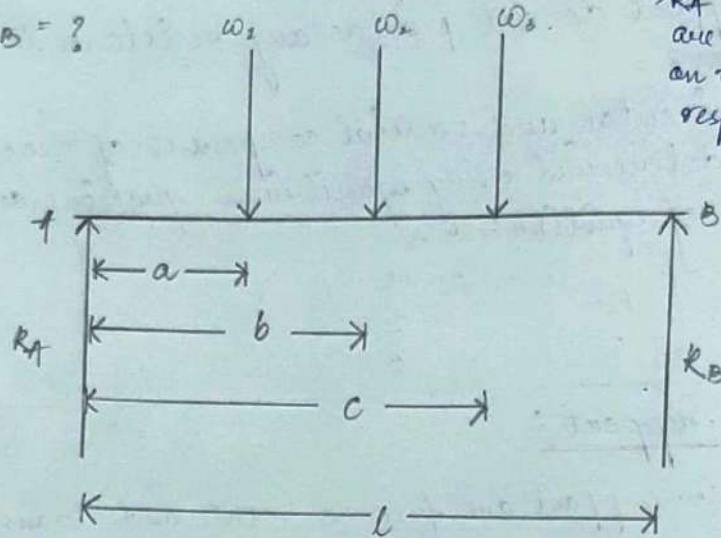 B = ?
ω₁ ω₂ ω₃.
RA
are
on
res
A B
a
b
RA RB
c
l